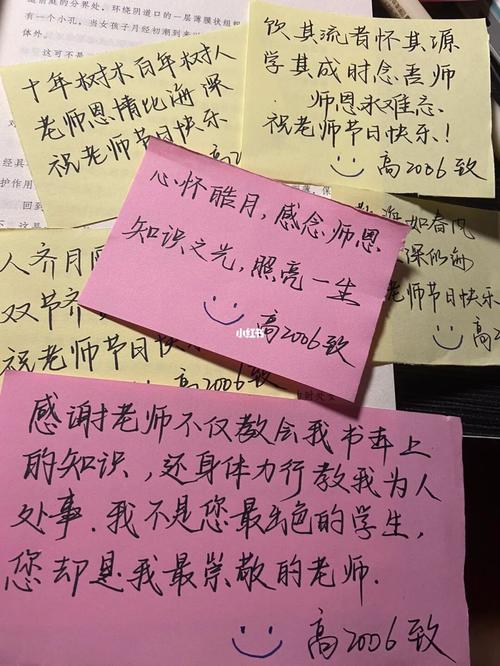 十年树木百年树人
老师恩情比海深
祝老师节日快乐
高2
饮其流者怀其源
学其成时念吾师
师恩永难忘
祝老师节日快乐!
高2006致
心怀皓月,感念师恩
知识之光,照亮一生
高2006致
小红书
如春风
深似海
老师节日快乐
高2
人齐月
双节齐
祝老师节日快乐
高2006致
感谢老师不仅教会我书本上
的知识,还身体力行教我为人
处事.我不是您最出色的学生,
您却是我最崇敬的老师.
高2006致
的分界处,环绕阴道口的一层薄膜状组
有一个小孔,当女孩子月经初潮到来
体外。
这可不是
护作用
回到